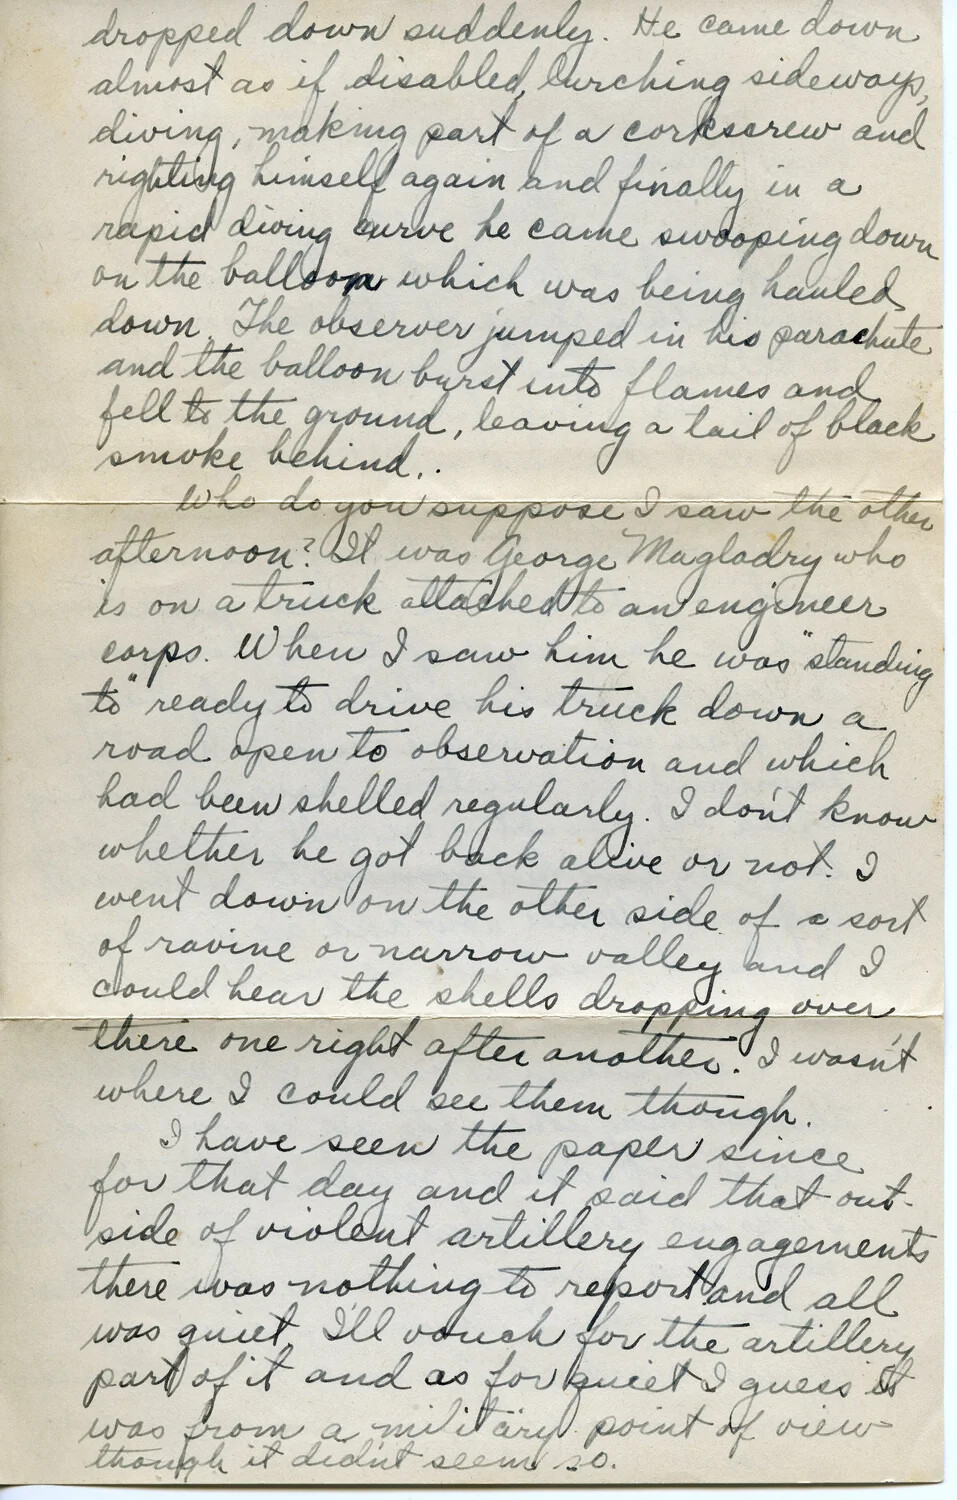 dropped down suddenly. He came down
almost as if disabled, lurching sideways,
diving, making part of a corkscrew and
righting himself again and finally in a
rapid diving curve he came swooping down
on the balloon which was being hauled
down. The observer jumped in his parachute
and the balloon burst into flames and
fell to the ground, leaving a tail of black
smoke behind..
Who do you suppose I saw the other
afternoon? It was George Magladry who
is on a truck attached to an engineer
corps. When I saw him he was "standing
to" ready to drive his truck down a
road open to observation and which
had been shelled regularly. I don't know
whether he got back alive or not. I
went down on the other side of a sort
of ravine or narrow valley and I
could hear the shells dropping over
there one right after another. I wasn't
where I could see them though.
I have seen the paper since
for that day and it said that out-
side of violent artillery engagements
there was nothing to report and all
was quiet. I'll vouch for the artillery
part of it and as for quiet I guess it
was from a military point of view
though it didn't seem so.